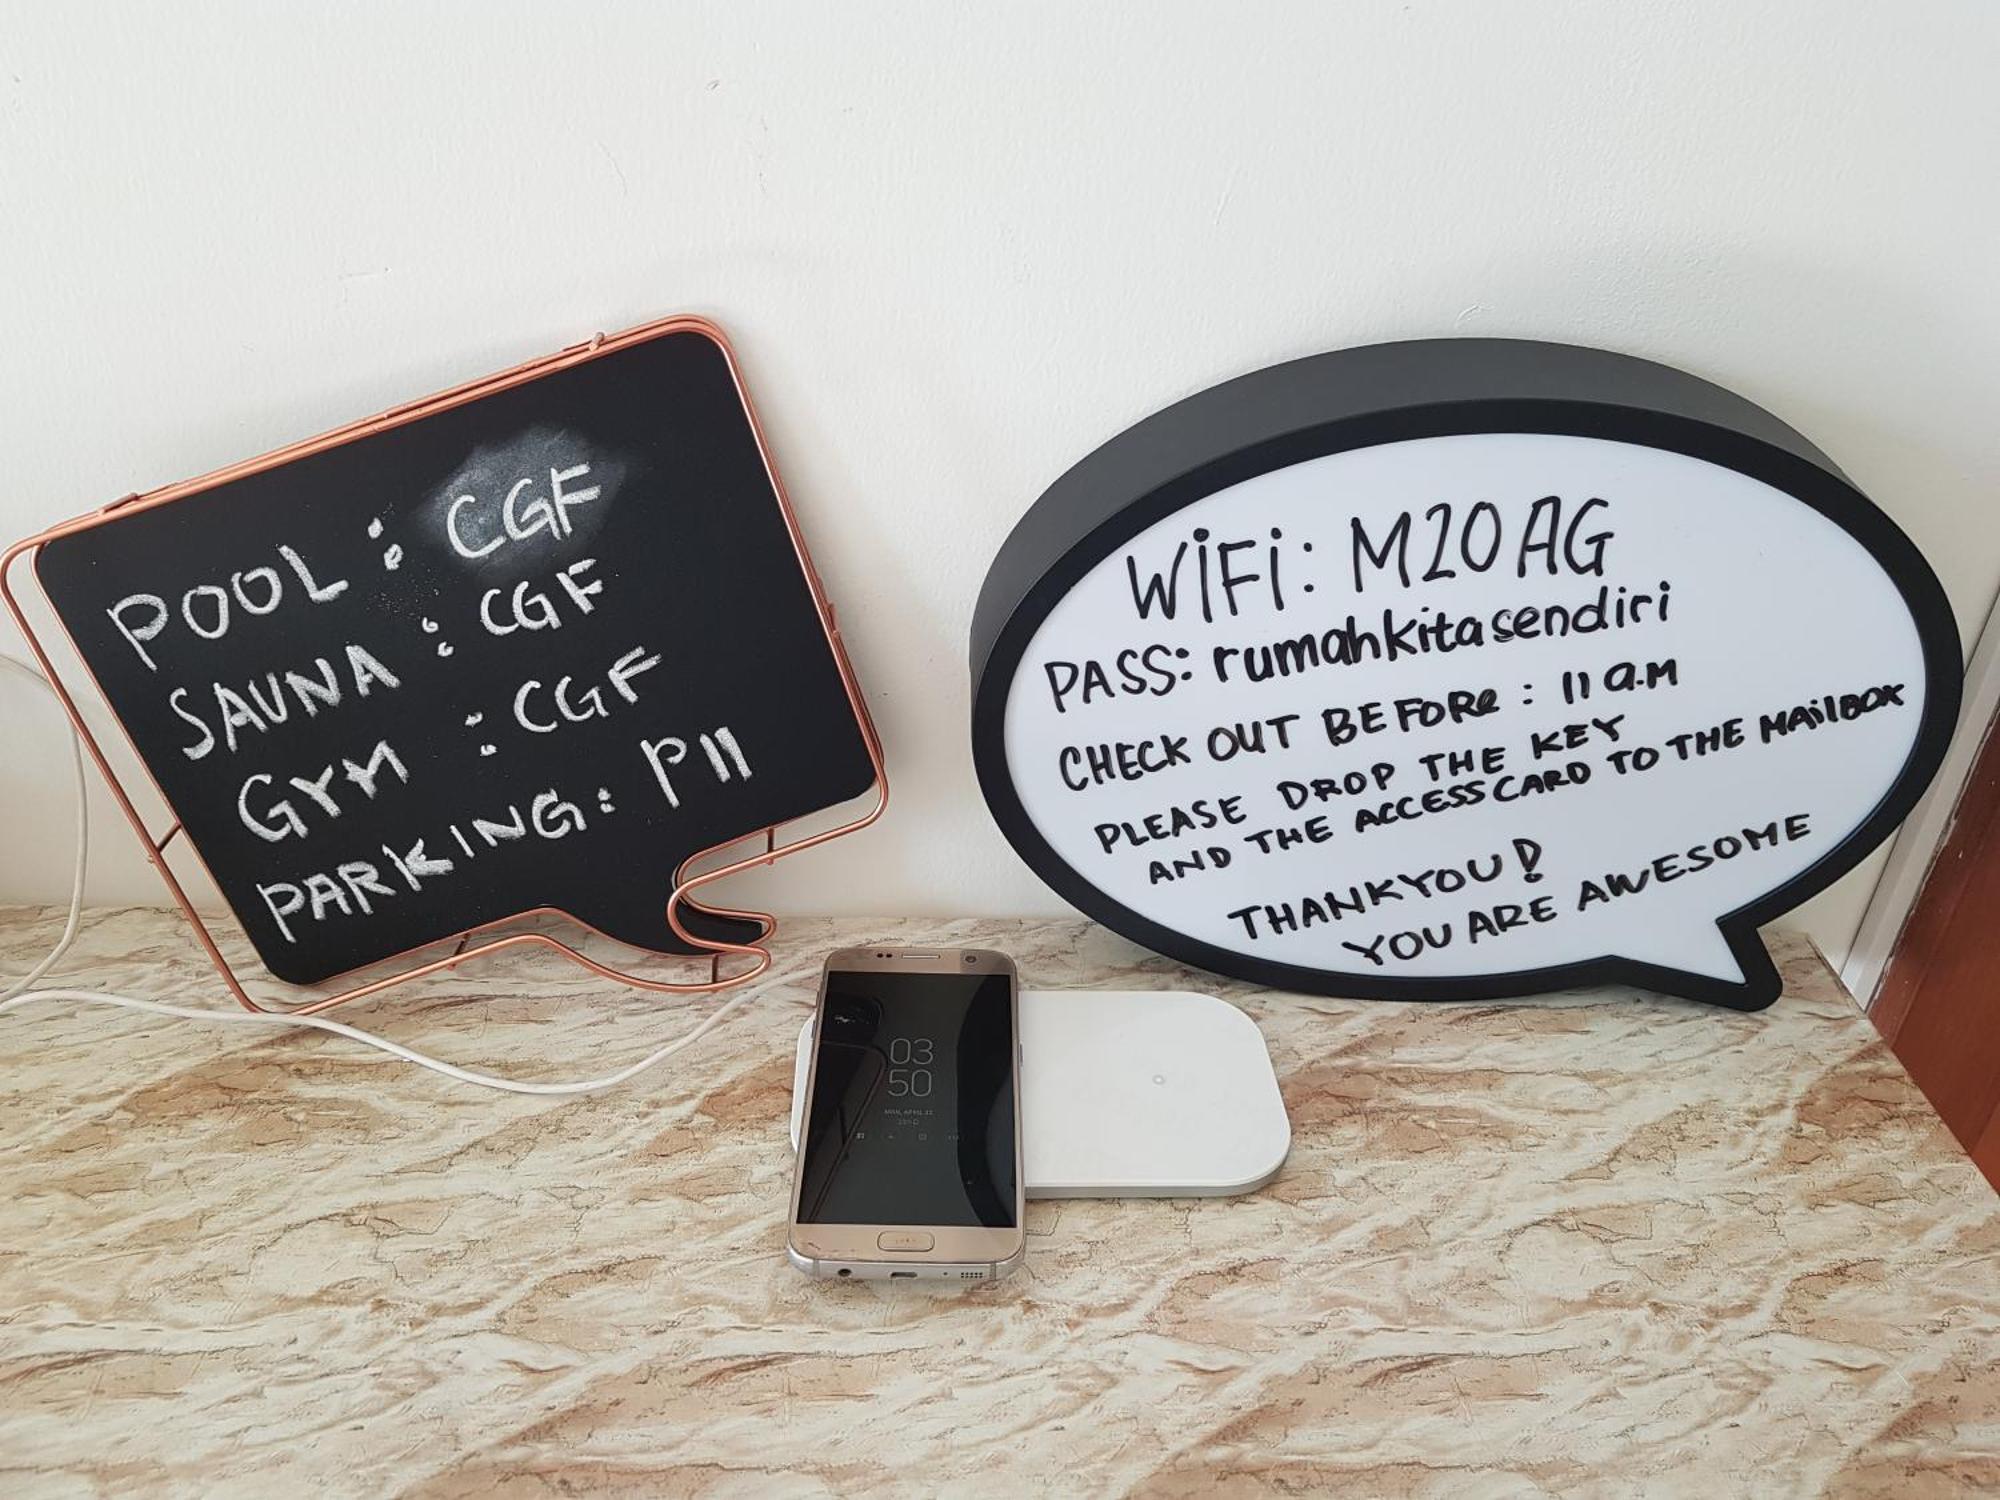 POOL : CGF
SAUNA : CGF
GYM : CGF
PARKING: P11
WiFi: M20AG
PASS: rumahkitasendiri
CHECK OUT BEFORe : 11 a.M
PLEASE DROP THE KEY
AND THE ACCESSCARD TO THE MAilBOX
THANKYOU!
YOU ARE AWESOME
03
50